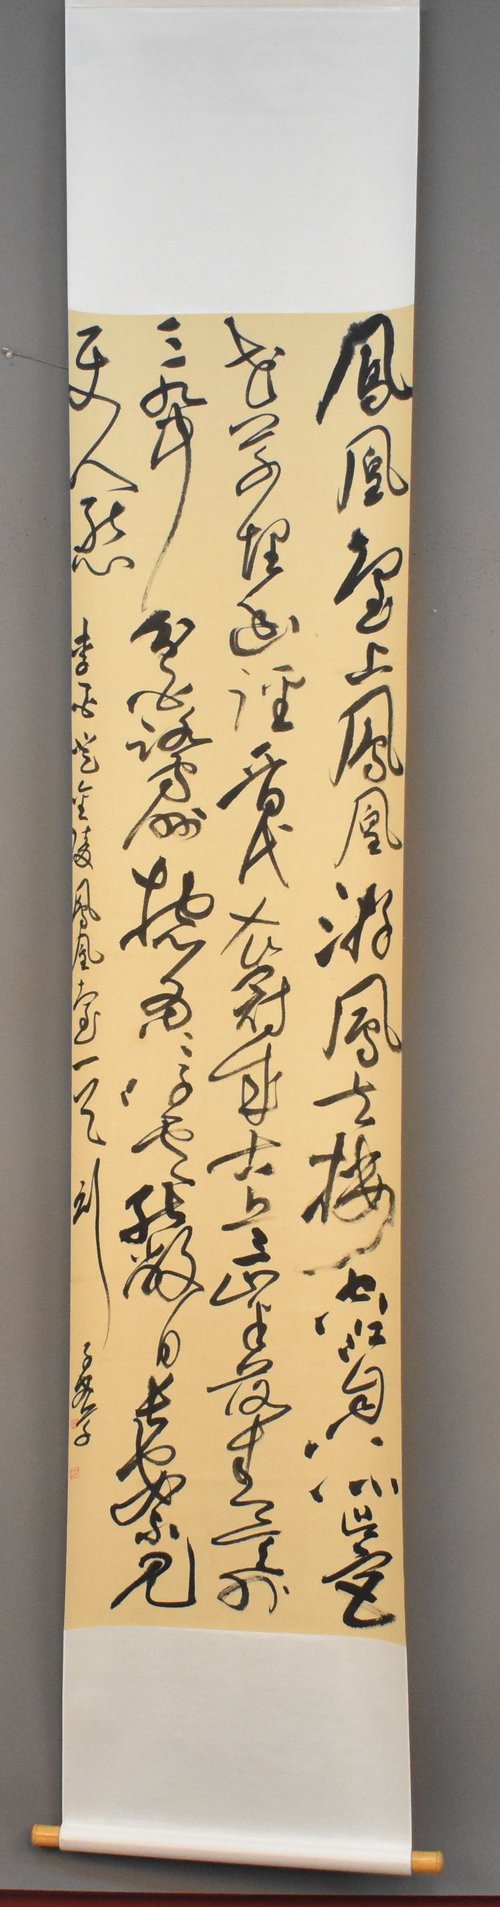 鳳凰臺上鳳凰游鳳去樓空江自流吳宮
花草埋幽徑晉代衣冠成古丘三山半落青天外
二水中分白鷺洲總為浮雲能蔽日長安不見
使人愁 李白登金陵鳳凰臺一